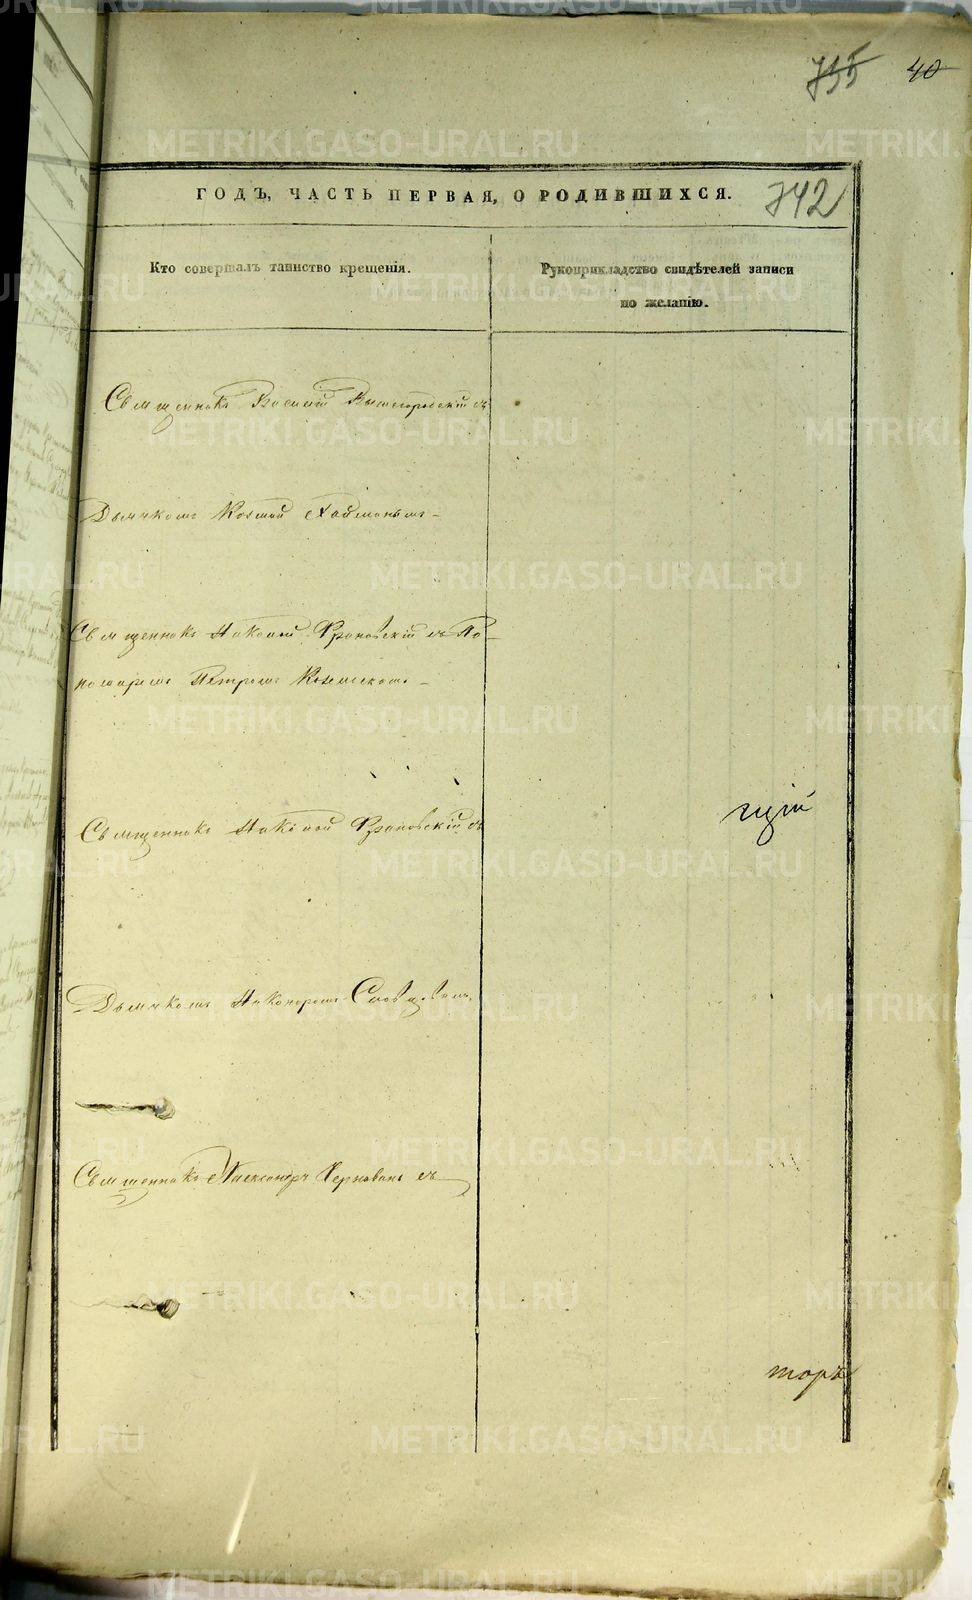 735 40
ГОДЪ, ЧАСТЬ ПЕРВАЯ, О РОДИВШИХСЯ. 742
Кто совершалъ таинство крещенія.
Рукоприкладство свидѣтелей записи
по желанію.
Священникъ Василій съ
Дьячкомъ Козмой
Священникъ Николай съ По-
номаремъ Петромъ
щій
Священникъ Николай съ
Дьячкомъ Никаноромъ
Священникъ Александръ съ
торъ
METRIKI.GASO-URAL.RU